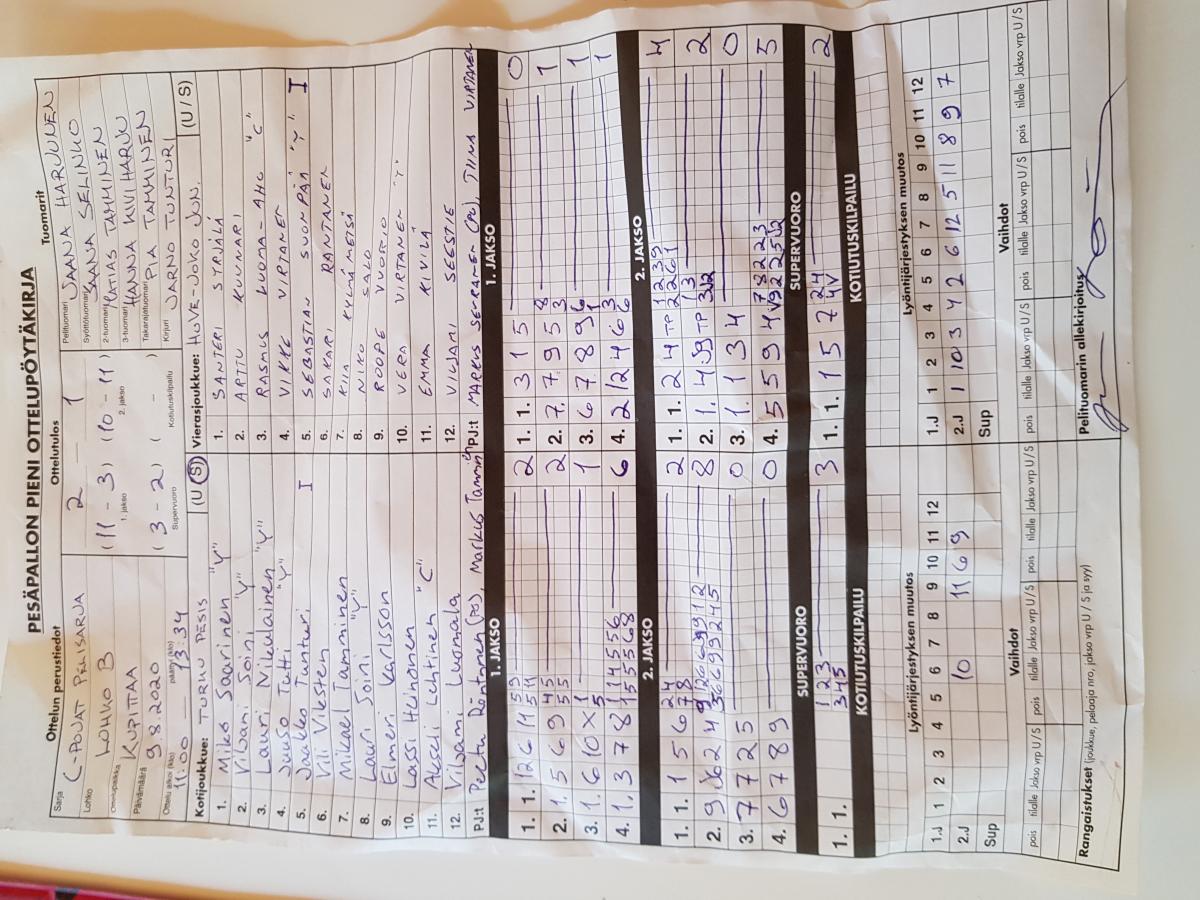 PESÄPALLON PIENI OTTELUPÖYTÄKIRJA
Ottelun perustiedot Ottelutulos Tuomarit
Sarja C-POJAT PERUSSARJA
Lohko LOHKO B
Ottelupaikka KUPITTAA
Päivämäärä 9.8.2020
Ottelu alkoi (klo) 11:00 päättyi (klo) 13:34
2 - 1
(11 - 3) (10 - 11)
1. jakso 2. jakso
(3 - 2) ( - )
Supervuoro Kotiutuskilpailu
Pelituomari JAANA HARJUNEN
Syöttötuomari SAANA SELINKO
2-tuomari MATIAS TAMMINEN
3-tuomari HANNA KIVIHARJU
Takarajatuomari PIA TAMMINEN
Kirjuri JARNO TUNTURI
Kotijoukkue: TURKU PESIS (U / S)
1. Miko Saarinen "Y"
2. Viljami Soini "Y"
3. Lauri Mikkulainen "Y"
4. Juuso Tutti "Y"
5. Jaakko Tunturi I
6. Vili Vilsten "Y"
7. Mikael Tamminen
8. Lauri Soini "Y"
9. Elmeri Karlsson
10. Lassi Heinonen
11. Ausseli Lehtinen "C"
12. Viljami Luomala
PJ:t Peetu Röntynen (PJ), Markus Tamminen
Vierasjoukkue: HUVE-JOKO JUN. (U / S)
1. SANTERI SYRJÄLÄ
2. ARTTU KUUNARI
3. RASMUS LUOMA-AHO "C"
4. VIKKE VIRTANEN
5. SEBASTIAN SUONPÄÄ "Y" I
6. SAKARI RANTANEN
7. KIIA KYLMÄMETSÄ
8. NIKO SALO
9. ROOPE VUORIO
10. VERA VIRTANEN "Y"
11. EMMA KIVILÄ
12. VILJAMI SEESTIE
PJ:t MARKUS (PJ), TIINA VIRTANEN
1. JAKSO 1. JAKSO
1. 1. 2
2. 1. 5 6 9 2
3. 1. 6 10 X 1
4. 1. 3 7 8 6
1. 1. 3 1 5 0
2. 7. 7 9 5 1
3. 6 7 8 9 1
4. 2 12 4 6 1
2. JAKSO 2. JAKSO
1. 1. 1 5 6 2
2. 9. 6 2 4 8
3. 7 7 2 5 0
4. 6 7 8 9 0
1. 1. 2 4 TP 4
2. 1. 4 TP 2
3. 1. 1 3 4 0
4. 5 5 9 4 5
SUPERVUORO SUPERVUORO
1. 1. 1 2 3 3 4 5 3
1. 1. 1 5 7 2
KOTIUTUSKILPAILU KOTIUTUSKILPAILU
Lyöntijärjestyksen muutos Lyöntijärjestyksen muutos
1.J 1 2 3 4 5 6 7 8 9 10 11 12
2.J 10 11 6 9
Sup
1.J 1 2 3 4 5 6 7 8 9 10 11 12
2.J 1 10 3 4 2 6 12 5 11 8 9 7
Sup
Vaihdot Vaihdot
pois tilalle Jakso vrp U/S pois tilalle Jakso vrp U/S pois tilalle Jakso vrp U/S
pois tilalle Jakso vrp U/S pois tilalle Jakso vrp U/S pois tilalle Jakso vrp U/S
Rangaistukset (joukkue, pelaaja nro, jakso vrp U / S ja syy)
Pelituomarin allekirjoitus